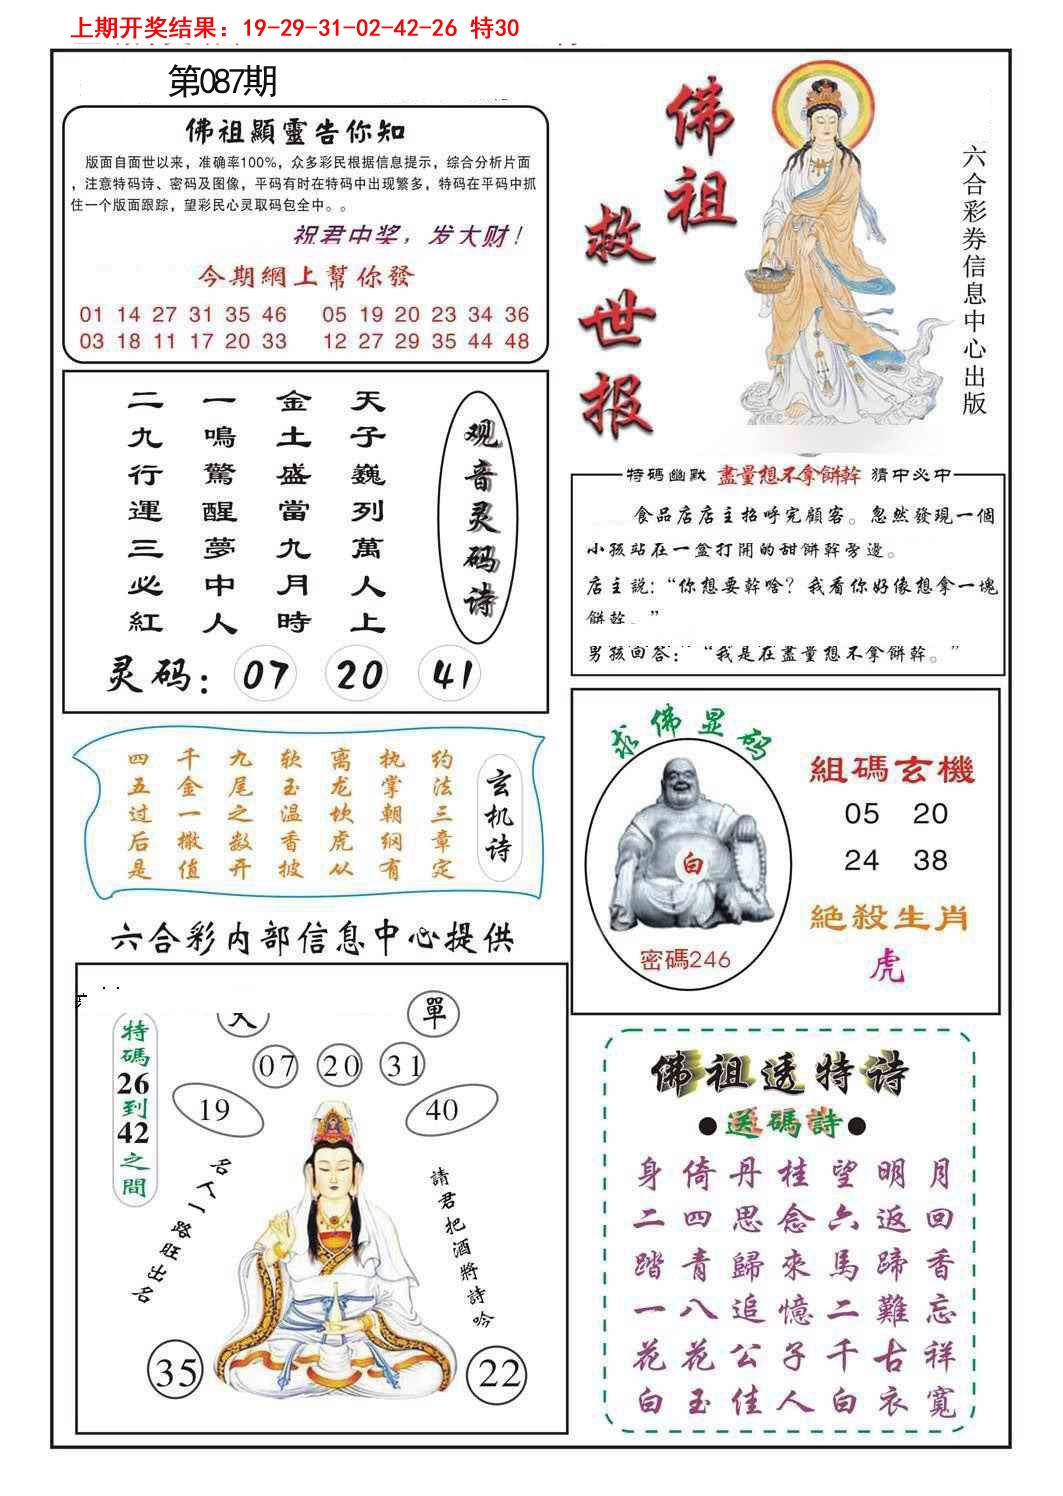 上期开奖结果：19-29-31-02-42-26 特30
第087期
佛祖顯靈告你知
版面自面世以来，准确率100%，众多彩民根据信息提示，综合分析片面
，注意特码诗、密码及图像，平码有时在特码中出现繁多，特码在平码中抓
住一个版面跟踪，望彩民心灵取码包全中。。
祝君中奖，发大财！
今期網上幫你發
01 14 27 31 35 46 05 19 20 23 34 36
03 18 11 17 20 33 12 27 29 35 44 48
佛祖
救世报
六合彩券信息中心出版
观音灵码诗
天子巍列萬人上
金土盛當九月時
一鳴驚醒夢中人
二九行運三必紅
灵码：07 20 41
特碼幽默 盡量想不拿餅幹 猜中必中
食品店店主招呼完顧客。忽然發現一個
小孩站在一盆打開的甜餅幹旁邊。
店主説：“你想要幹啥？我看你好像想拿一塊
餅幹。”
男孩回答：“我是在盡量想不拿餅幹。”
玄机诗
约法三章定
执掌朝纲有
离龙坎虎从
软玉温香披
九尾之数开
千金一撒值
四五过后是
求佛显码
白
密碼246
組碼玄機
05 20
24 38
絶殺生肖
虎
六合彩内部信息中心提供
單
特碼26到42之間
07 20 31
19 40
名人一路旺出名
請君把酒將詩吟
35 22
佛祖透特诗
●送碼詩●
月回香忘祥寬
明返蹄難古衣
望六馬二千白
桂念來憶子人
丹思歸追公佳
倚四青八花玉
身二踏一花白